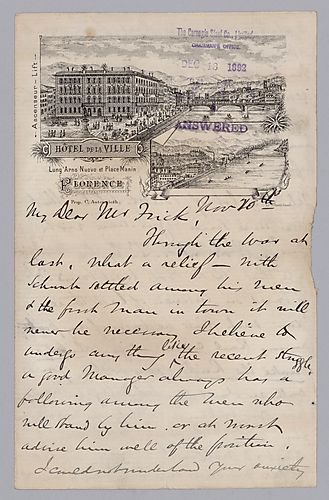 The Carnegie Steel Co., Limited
CHAIRMAN'S OFFICE.
DEC 16 1892
ANSWERED
Ascenseur - Lift -
HÔTEL DE LA VILLE
Lung'Arno Nuovo et Place Manin
FLORENCE
Prop. C.
My Dear Mr Frick, Nov 30th
Through the War at
last, what a relief — with
Schwab settled among his men
& the first man in town it will
never be necessary I believe to
undergo anything like the recent struggle.
a good Manager always has a
following among the men who
will stand by him. or at most
advise him well of the position.
I could not understand your anxiety